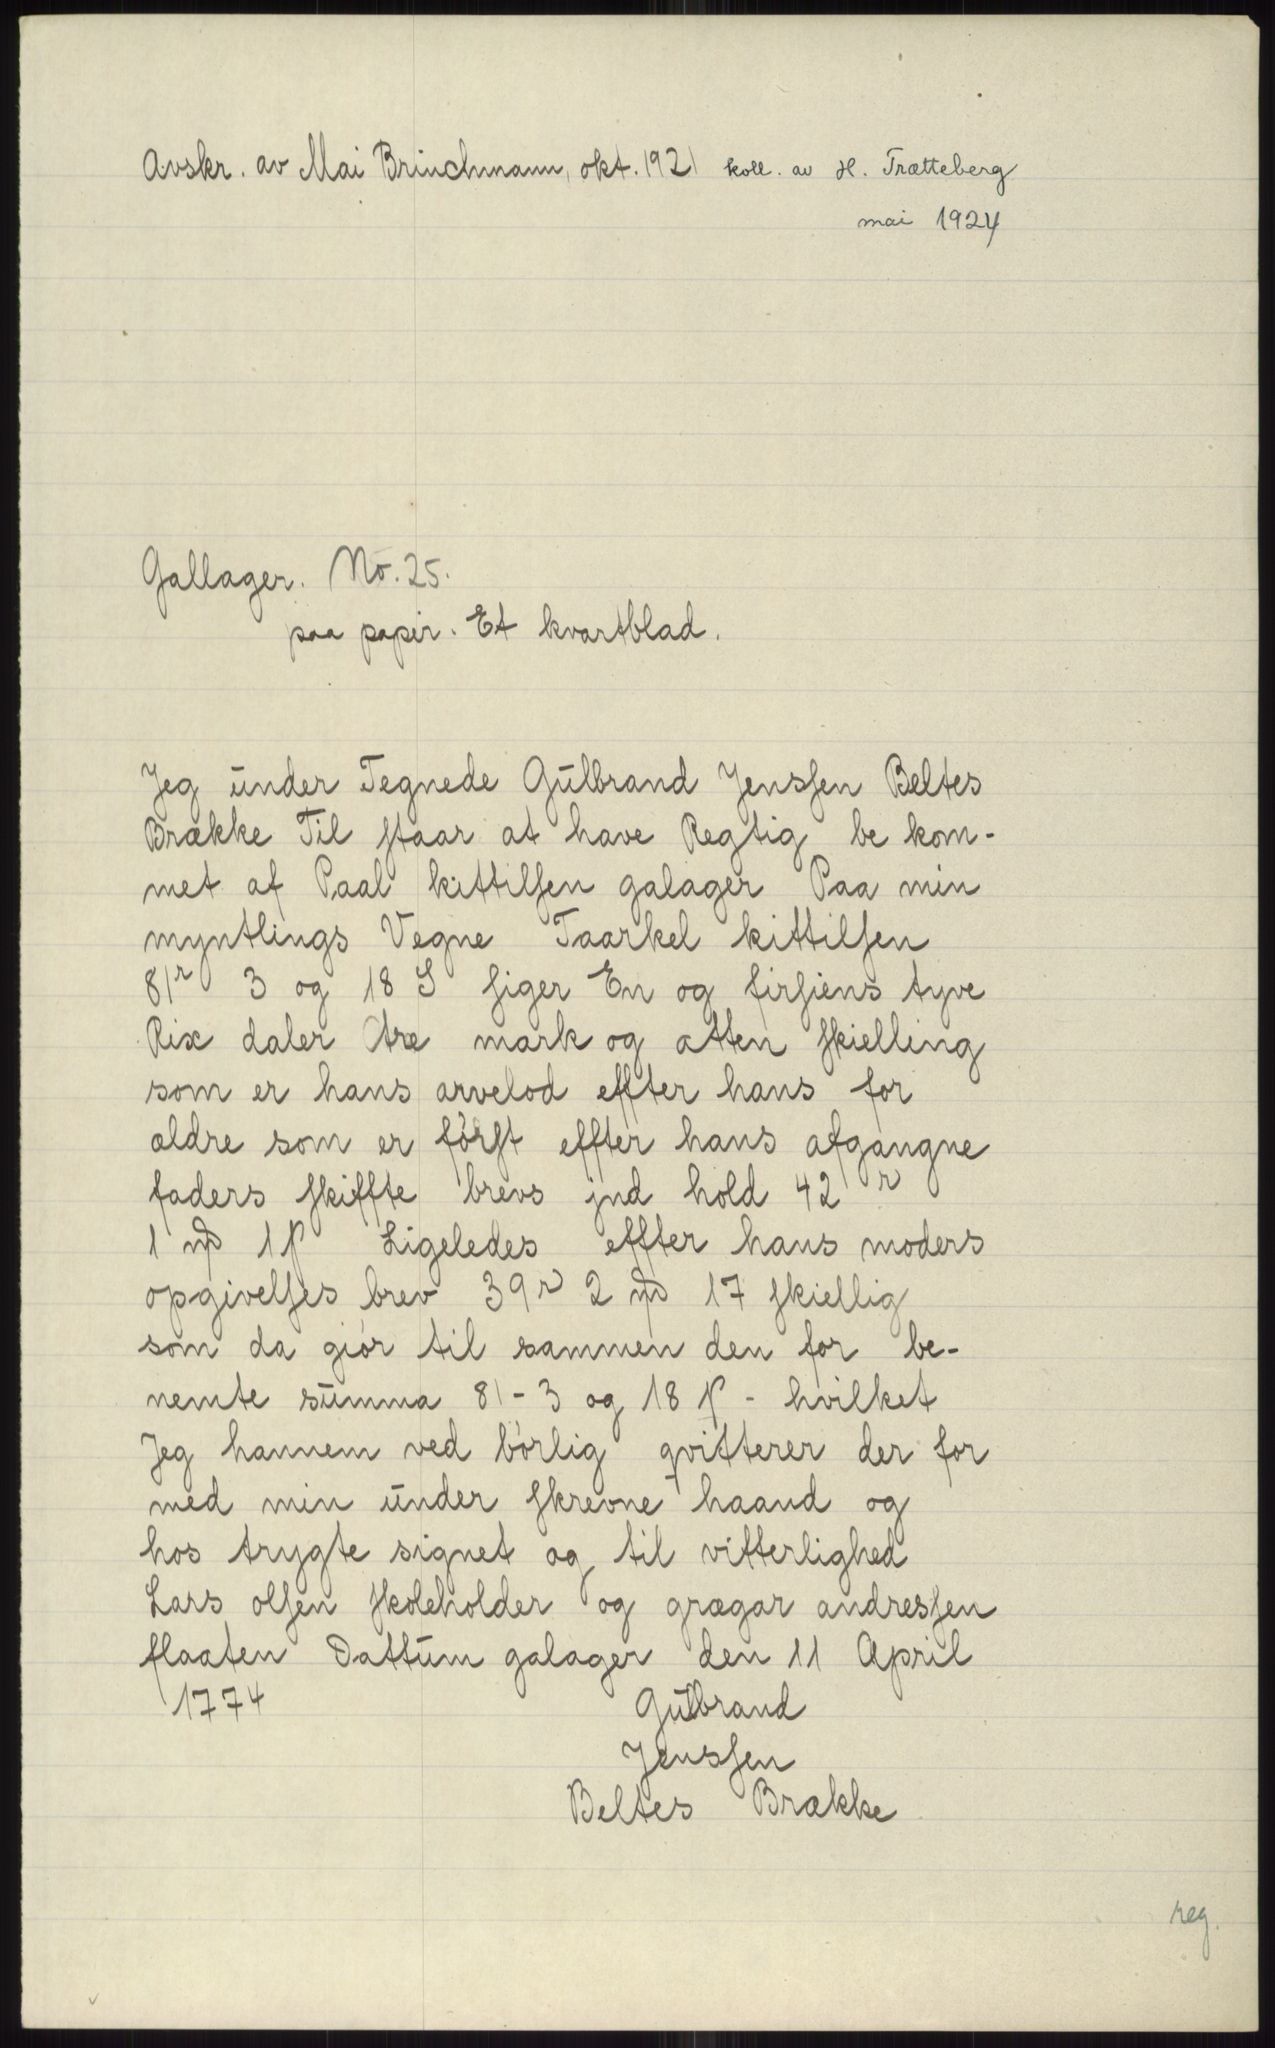 Avskr. av Mai Brinchmann, okt. 1921 koll. av H. Trætteberg
mai 1924
Gallager. No. 25.
paa papir. Et kvartblad.
Jeg under Tegnede Gulbrand Jenssen Beltes
Brække Til staar at have Regtig be kom-
met af Paal kittilsen galager Paa min
myntlings Vegne Taarkel kittilsen
81r 3 og 18 S siger En og firsiens tyve
Rix daler tre mark og atten skielling
som er hans arvelod effter hans for
ældre som er først effter hans afgangne
faders skiffte brevs jnd hold 42 r
1 mp 1 β Ligeledes effter hans moders
opgivelses brev 39 r 2 mp 17 skiellig
som da giør til sammen den for be-
nemte summa 81-3 og 18 β - hvilket
Jeg hannem ved børlig qvitterer der for
med min under skrevne haand og
hos trygte signet og til vitterlighed
Lars olsen skoleholder og grægar andressen
flaaten Dattum galager den 11 April
1774 Gulbrand
Jenssen
Beltes Brække
reg.